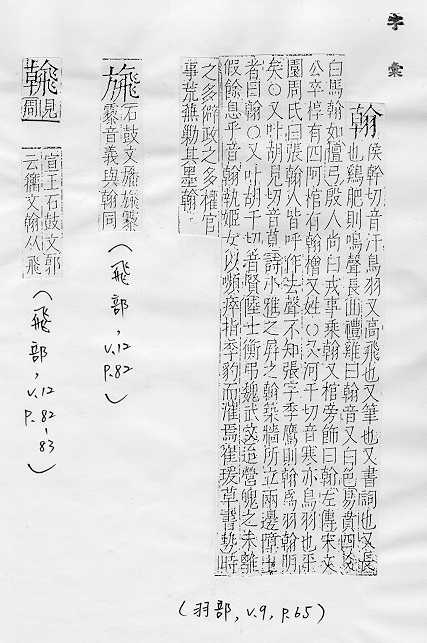 字彙
翰 侯幹切音汗鳥羽又高飛也又筆也又書詞也又長
也鷄肥則鳴聲長曲禮雞曰翰音又白色易賁四爻
白馬翰如檀弓殷人尚白戎事乘翰又棺旁飾曰翰左傳宋文
公卒椁有四阿棺有翰檜又姓○又河干切音寒亦鳥羽也平
園周氏曰張翰人皆呼作去聲不知張字季鷹則翰爲羽翰明
矣○又叶胡見切音莧詩小雅之屏之翰築墻所立兩邊障土
者曰翰○又叶胡千切音賢陸士衡弔魏武文迨營魄之未離
假餘息乎音翰執姬女以嚬瘁指季豹而漼焉崔瑗草書勢時
之多僻政之多權官
事荒蕪勦其墨翰
(羽部, v.9, p.65)
石鼓文
音義與翰同
(飛部, v.12 p.82)
見周
宣王石鼓文郭
云籒文翰从飛
(飛部, v.12 p.82-83)